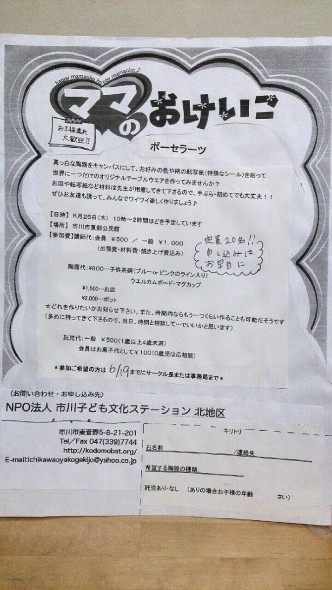 happy mamaoke
happy mamaoke♪
ママのおけいこ
お子様連れ
大歓迎!!
ポーセラーツ
真っ白な陶器をキャンバスにして、お好みの色や柄の転写紙(特殊なシール)を貼って
世界に一つだけのオリジナルテーブルウエアを作ってみませんか?
お皿や転写紙など材料は先生が用意してきて下さるので、手ぶら・初めてでも大丈夫!!
ぜひお友達も誘って、みんなでワイワイ楽しく作りましょう♪
【日時】 6月25日(木) 10時~2時間ほどを予定しています
【場所】 市川市東部公民館
【参加費】講師代:会員 ¥500 / 一般 ¥1,000
(出張費・材料費・焼き上げ費込み)
定員20名!!
申し込みは
お早目に
陶器代:¥800…子供茶碗(ブルーorピンクのライン入り)
ウエルカムボード・マグカップ
¥1,500…お皿
¥2,000…ポット
☆どれを作りたいかお知らせ下さい。また、時間内ならもう一つくらい作ることも可能だそうです
(多めに持ってきて下さるので、当日、時間と相談して…でいいかと思います)
託児代:一般 ¥500(1歳以上4歳未満)
会員はお菓子代として¥100(0歳児は応相談)
*参加ご希望の方は 6/19までにサークル長または事務局まで*
(お問い合わせ・お申し込み先)
NPO法人 市川子ども文化ステーション 北地区
市川市東菅野5-8-21-201
Tel/Fax 047(339)7744
http://kodomobst.org/
E-mail:ichikawaoyakogekijo@yahoo.co.jp
キリトリ
お名前 /連絡先
希望する陶器の種類
託児あり・なし (ありの場合お子様の年齢 さい)